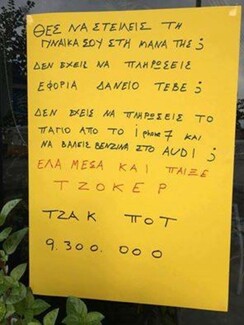 ΘΕΣ ΝΑ ΣΤΕΙΛΕΙΣ ΤΗ
ΓΥΝΑΙΚΑ ΣΟΥ ΣΤΗ ΜΑΝΑ ΤΗΣ ;
ΔΕΝ ΕΧΕΙΣ ΝΑ ΠΛΗΡΩΣΕΙΣ
ΕΦΟΡΙΑ ΔΑΝΕΙΟ ΤΕΒΕ ;
ΔΕΝ ΕΧΕΙΣ ΝΑ ΠΛΗΡΩΣΕΙΣ ΤΟ
ΠΑΓΙΟ ΑΠΟ ΤΟ iphone 7 ΚΑΙ
ΝΑ ΒΑΛΕΙΣ ΒΕΝΖΙΝΑ ΣΤΟ AUDI ;
ΕΛΑ ΜΕΣΑ ΚΑΙ ΠΑΙΞΕ
ΤΖΟΚΕΡ
ΤΖΑΚ ΠΟΤ
9.300.000